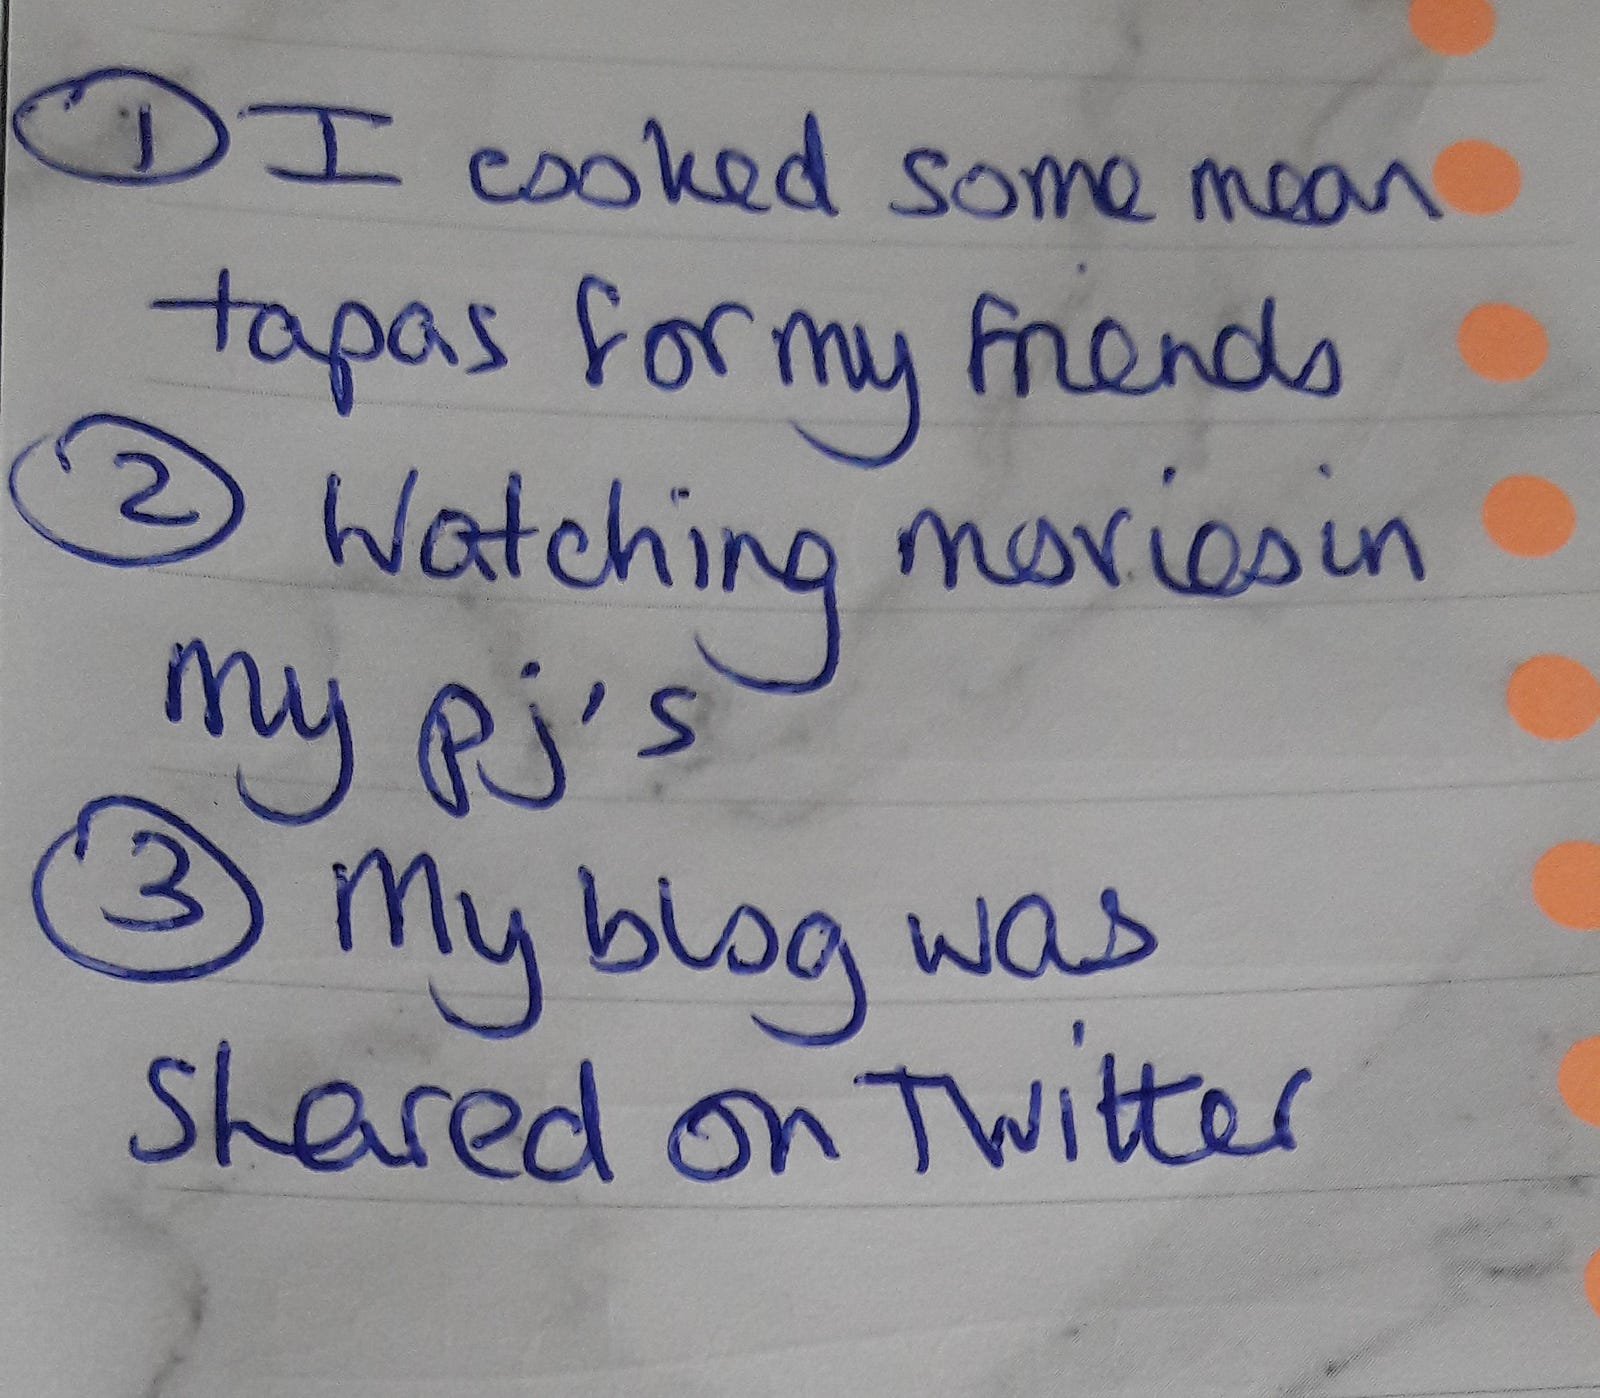 1 I cooked some mean
tapas for my friends
2 Watching movies in
my pj's
3 My blog was
shared on Twitter